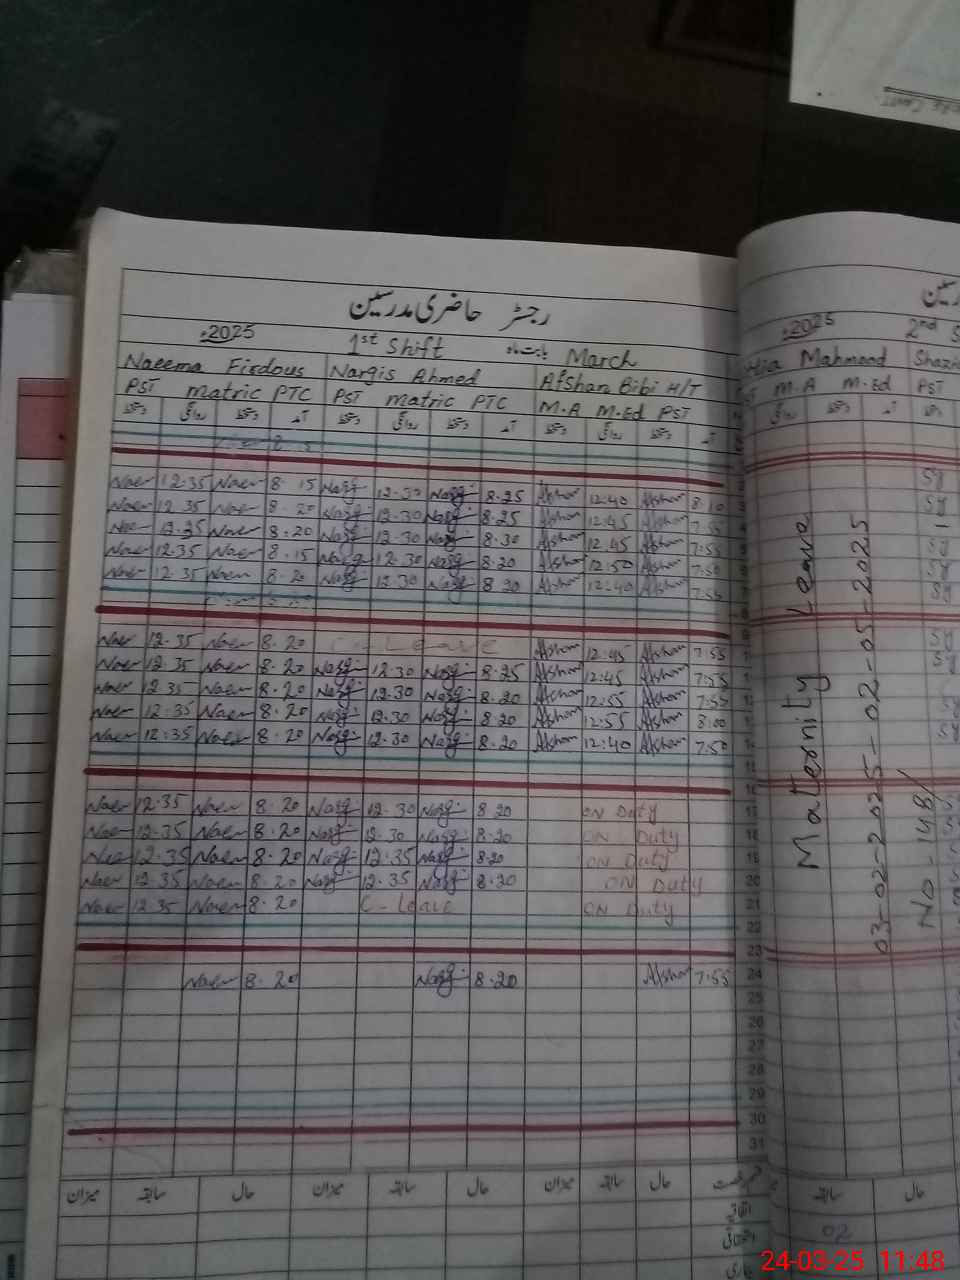 رجسٹر حاضری مدرسین
2025ء 1st Shift بابت ماہ March
Naeema Firdous Nargis Ahmed Afshan Bibi H/T
PST Matric PTC PST Matric PTC M.A M.Ed PST
دستخط روانگی دستخط آمد دستخط روانگی دستخط آمد دستخط روانگی دستخط آمد
Naee 12.35 Naee 8.15 Narg: 12.30 Narg: 8.25 Afshan 12:40 Afshan 8:10
Naee 12.35 Naee 8.20 Narg: 12.30 Narg: 8.25 Afshan 12:45 Afshan 7:55
Naee 12.35 Naee 8.20 Narg: 12.30 Narg: 8.30 Afshan 12:45 Afshan 7:55
Naee 12.35 Naee 8.15 Narg: 12.30 Narg: 8.20 Afshan 12:50 Afshan 7:50
Naee 12.35 Naee 8.20 Narg: 12.30 Narg: 8.20 Afshan 12:40 Afshan 7:55
Naee 12.35 Naee 8.20 C-Leave Afshan 12:45 Afshan 7:55
Naee 12.35 Naee 8.20 Narg: 12.30 Narg: 8.25 Afshan 12:45 Afshan 7:55
Naee 12.35 Naee 8.20 Narg: 12.30 Narg: 8.20 Afshan 12:55 Afshan 7:55
Naee 12.35 Naee 8.20 Narg: 12.30 Narg: 8.20 Afshan 12:55 Afshan 8:00
Naee 12.35 Naee 8.20 Narg: 12.30 Narg: 8.20 Afshan 12:40 Afshan 7:50
15
16
Naee 12.35 Naee 8.20 Narg: 12.30 Narg: 8.20 ON Duty 17
Naee 12.35 Naee 8.20 Narg: 12.30 Narg: 8.20 ON Duty 18
Naee 12.35 Naee 8.20 Narg: 12.35 Narg: 8.20 ON Duty 19
Naee 12.35 Naee 8.20 Narg: 12.35 Narg: 8.20 ON Duty 20
Naee 12.35 Naee 8.20 C-Leave ON Duty 21
22
23
Naee 8.20 Narg: 8.20 Afshan 7:55 24
25
26
27
28
29
30
31
میزان سابقہ حال میزان سابقہ حال میزان سابقہ حال
اتفاقیہ
2025ء 2nd
Mahmood Shazia
M.A M.Ed PST
دستخط آمد دستخط
Maternity Leave
03-02-2025 - 02-05-2025
سابقہ حال
02
24-03-25 11:48